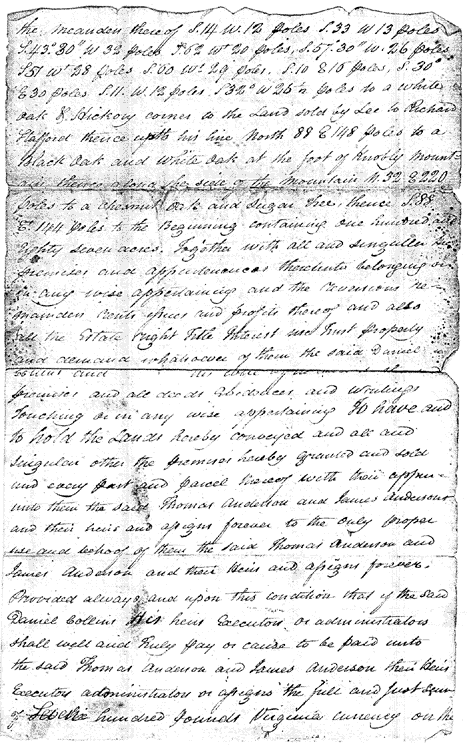 the meanders thereof S.14 W.12 poles S.33 W 13 poles
S.43°30" W 32 poles S.62 W. 20 poles, S.57.30" W. 26 poles
S51 W. 28 poles S.60 W. 29 poles. S.10 E 16 poles, S.30°
E 30 poles S.11. W.12 poles S32° W 26 poles to a white
Oak & Hickory corner to the Land sold by Lee to Richard
Stafford thence with his line North 88 E 148 poles to a
Black Oak and White Oak at the foot of Knobly Mount-
ain thence along the side of the Mountain N.32 E 220
poles to a Chesnut Oak and Sugar Tree, thence S.88
E. 144 poles to the Beginning containing one hundred and
Eighty seven acres. Together with all and singular the
premises and appurtenances thereunto belonging or
in any wise appertaining and the reversions re-
mainders rents issues and profits thereof and also
all the Estate Right Title Interest use Trust property
and demand whatsoever of them the said Daniel
Collins and
premises and all deeds Evidences and writings
Touching or in any wise appertaining To have and
to hold the Lands hereby conveyed and all and
singular other the premises hereby granted and sold
and every part and parcel thereof with their appur-
unto them the said Thomas Anderson and James Anderson
and their heirs and assigns forever to the only proper
use and behoof of them the said Thomas Anderson and
James Anderson and their Heirs and assigns forever.
Provided always, and upon this condition that if the said
Daniel Collins His heirs Executors or administrators
shall well and truly pay or cause to be paid unto
the said Thomas Anderson and James Anderson their Heirs
Executors administrators or assigns the full and just sum
of hundred pounds Virginia currency on the